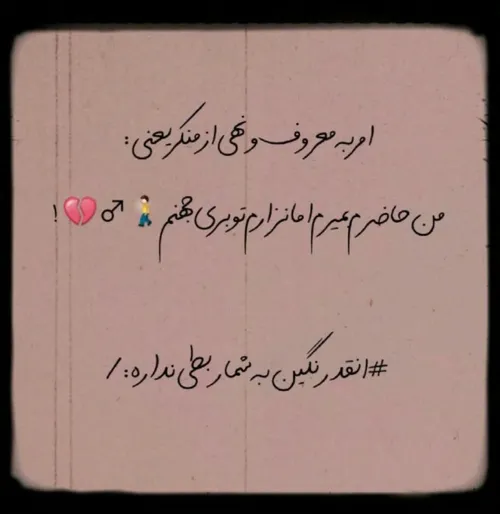 امر به معروف و نهی از منکر یعنی :
من حاضرم بمیرم اما نزارم تو بری جهنم🚶♂💔!
#انقدر نگین به شما ربطی نداره :/